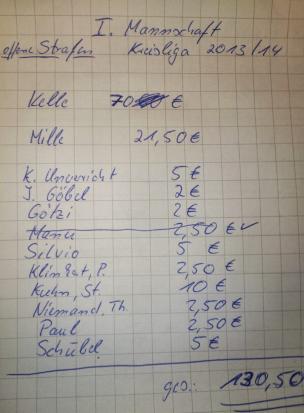 I. Mannschaft
offene Strafen Kreisliga 2013/14
Kelle 70 €
Mille 21,50 €
K. Unversicht 5 €
J. Göbel 2 €
Götzi 2 €
Manu 2,50 € ✓
Silvio 5 €
Klingat, P. 2,50 €
Kuhn, St. 10 €
Niemand, Th. 2,50 €
Paul 2,50 €
Schübel 5 €
ges.: 130,50